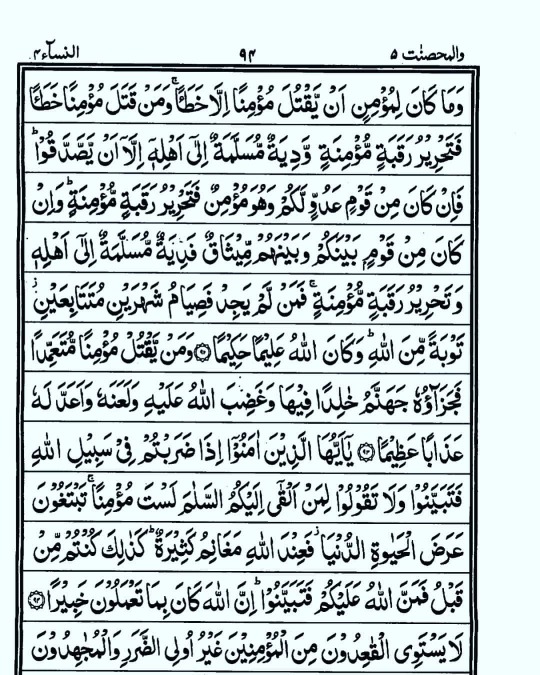 النسآء ٤ ٩٤ والمحصنٰت ٥
وَمَا كَانَ لِمُؤْمِنٍ اَنْ يَّقْتُلَ مُؤْمِنًا اِلَّا خَطَـًٔا ۚ وَمَنْ قَتَلَ مُؤْمِنًا خَطَـًٔا
فَتَحْرِيْرُ رَقَبَةٍ مُّؤْمِنَةٍ وَّدِيَةٌ مُّسَلَّمَةٌ اِلٰٓى اَهْلِهٖٓ اِلَّآ اَنْ يَّصَّدَّقُوْا ؕ
فَاِنْ كَانَ مِنْ قَوْمٍ عَدُوٍّ لَّكُمْ وَهُوَ مُؤْمِنٌ فَتَحْرِيْرُ رَقَبَةٍ مُّؤْمِنَةٍ ؕ وَاِنْ
كَانَ مِنْ قَوْمٍۭ بَيْنَكُمْ وَبَيْنَهُمْ مِّيْثَاقٌ فَدِيَةٌ مُّسَلَّمَةٌ اِلٰٓى اَهْلِهٖ
وَتَحْرِيْرُ رَقَبَةٍ مُّؤْمِنَةٍ ۚ فَمَنْ لَّمْ يَجِدْ فَصِيَامُ شَهْرَيْنِ مُتَتَابِعَيْنِ ؗ
تَوْبَةً مِّنَ اللّٰهِ ؕ وَكَانَ اللّٰهُ عَلِيْمًا حَكِيْمًا ۝٩٢ وَمَنْ يَّقْتُلْ مُؤْمِنًا مُّتَعَمِّدًا
فَجَزَآؤُهٗ جَهَنَّمُ خٰلِدًا فِيْهَا وَغَضِبَ اللّٰهُ عَلَيْهِ وَلَعَنَهٗ وَاَعَدَّ لَهٗ
عَذَابًا عَظِيْمًا ۝٩٣ يٰٓاَيُّهَا الَّذِيْنَ اٰمَنُوْٓا اِذَا ضَرَبْتُمْ فِيْ سَبِيْلِ اللّٰهِ
فَتَبَيَّنُوْا وَلَا تَقُوْلُوْا لِمَنْ اَلْقٰٓى اِلَيْكُمُ السَّلٰمَ لَسْتَ مُؤْمِنًا ۚ تَبْتَغُوْنَ
عَرَضَ الْحَيٰوةِ الدُّنْيَا ؗ فَعِنْدَ اللّٰهِ مَغَانِمُ كَثِيْرَةٌ ؕ كَذٰلِكَ كُنْتُمْ مِّنْ
قَبْلُ فَمَنَّ اللّٰهُ عَلَيْكُمْ فَتَبَيَّنُوْا ؕ اِنَّ اللّٰهَ كَانَ بِمَا تَعْمَلُوْنَ خَبِيْرًا ۝٩٤
لَا يَسْتَوِى الْقٰعِدُوْنَ مِنَ الْمُؤْمِنِيْنَ غَيْرُ اُولِى الضَّرَرِ وَالْمُجٰهِدُوْنَ